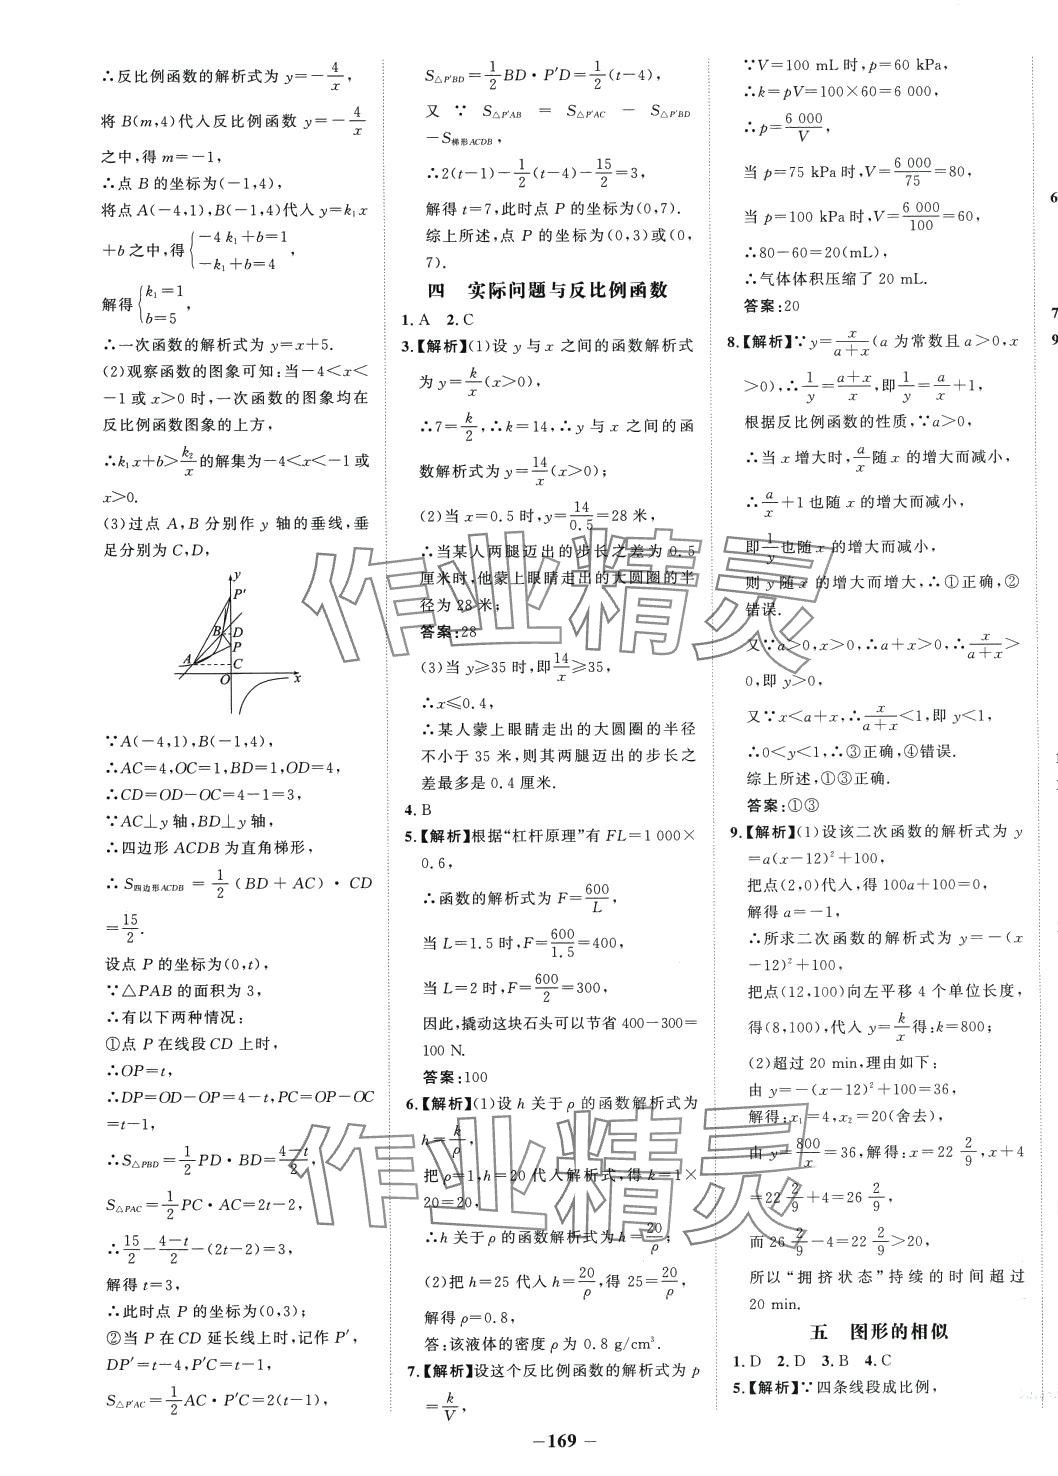 ∴反比例函数的解析式为 y=-4/x,
将 B(m,4)代入反比例函数 y=-4/x
之中,得 m=-1,
∴点 B 的坐标为(-1,4),
将点A(-4,1),B(-1,4)代入 y=k₁x
+b 之中,得{-4k₁+b=1
-k₁+b=4,
解得{k₁=1
b=5,
∴一次函数的解析式为 y=x+5.
(2)观察函数的图象可知:当-4<x<
-1 或 x>0 时,一次函数的图象均在
反比例函数图象的上方,
∴k₁x+b>k₂/x的解集为-4<x<-1 或
x>0.
(3)过点 A,B 分别作 y 轴的垂线,垂
足分别为 C,D,
y
P′
B
D
P
A
C
O
x
∵A(-4,1),B(-1,4),
∴AC=4,OC=1,BD=1,OD=4,
∴CD=OD-OC=4-1=3,
∵AC⊥y 轴,BD⊥y 轴,
∴四边形 ACDB 为直角梯形,
∴S四边形ACDB=1/2(BD+AC)·CD
=15/2.
设点 P 的坐标为(0,t),
∵△PAB 的面积为 3,
∴有以下两种情况:
①点 P 在线段 CD 上时,
∴OP=t,
∴DP=OD-OP=4-t,PC=OP-OC
=t-1,
∴S△PBD=1/2PD·BD=4-t/2,
S△PAC=1/2PC·AC=2t-2,
∴15/2-4-t/2-(2t-2)=3,
解得 t=3,
∴此时点 P 的坐标为(0,3);
②当 P 在 CD 延长线上时,记作 P′,
DP′=t-4,P′C=t-1,
S△P′AC=1/2AC·P′C=2(t-1),
S△P′BD=1/2BD·P′D=1/2(t-4),
又 ∵ S△P′AB = S△P′AC - S△P′BD
-S梯形ACDB,
∴2(t-1)-1/2(t-4)-15/2=3,
解得 t=7,此时点 P 的坐标为(0,7).
综上所述,点 P 的坐标为(0,3)或(0,
7).
四 实际问题与反比例函数
1.A 2.C
3.【解析】(1)设 y 与 x 之间的函数解析式
为 y=k/x(x>0),
∴7=k/2,∴k=14,∴y 与 x 之间的函
数解析式为 y=14/x(x>0);
(2)当 x=0.5 时,y=14/0.5=28 米,
∴当某人两腿迈出的步长之差为 0.5
厘米时,他蒙上眼睛走出的大圆圈的半
径为 28 米;
答案:28
(3)当 y≥35 时,即14/x≥35,
∴x≤0.4,
∴某人蒙上眼睛走出的大圆圈的半径
不小于 35 米,则其两腿迈出的步长之
差最多是 0.4 厘米.
4.B
5.【解析】根据“杠杆原理”有 FL=1 000×
0.6,
∴函数的解析式为 F=600/L,
当 L=1.5 时,F=600/1.5=400,
当 L=2 时,F=600/2=300,
因此,撬动这块石头可以节省 400-300=
100 N.
答案:100
6.【解析】(1)设 h 关于 ρ 的函数解析式为
h=k/ρ,
把 ρ=1,h=20 代入解析式,得 k=1×
20=20,
∴h 关于 ρ 的函数解析式为 h=20/ρ;
(2)把 h=25 代入 h=20/ρ,得 25=20/ρ,
解得 ρ=0.8,
答:该液体的密度 ρ 为 0.8 g/cm³.
7.【解析】设这个反比例函数的解析式为 p
=k/V,
∵V=100 mL 时,p=60 kPa,
∴k=pV=100×60=6 000,
∴p=6 000/V,
当 p=75 kPa 时,V=6 000/75=80,
当 p=100 kPa 时,V=6 000/100=60,
∴80-60=20(mL),
∴气体体积压缩了 20 mL.
答案:20
8.【解析】∵y=x/a+x(a 为常数且 a>0,x
>0),∴1/y=a+x/x,即1/y=a/x+1,
根据反比例函数的性质,∵a>0,
∴当 x 增大时,a/x随 x 的增大而减小,
∴a/x+1 也随 x 的增大而减小,
即1/y也随 x 的增大而减小,
则 y 随 x 的增大而增大,∴①正确,②
错误.
又∵a>0,x>0,∴a+x>0,∴x/a+x>
0,即 y>0,
又∵x<a+x,∴x/a+x<1,即 y<1,
∴0<y<1,∴③正确,④错误.
综上所述,①③正确.
答案:①③
9.【解析】(1)设该二次函数的解析式为 y
=a(x-12)²+100,
把点(2,0)代入,得 100a+100=0,
解得 a=-1,
∴所求二次函数的解析式为 y=-(x
-12)²+100,
把点(12,100)向左平移 4 个单位长度,
得(8,100),代入 y=k/x得:k=800;
(2)超过 20 min,理由如下:
由 y=-(x-12)²+100=36,
解得:x₁=4,x₂=20(舍去),
由 y=800/x=36,解得:x=22 2/9,x+4
=22 2/9+4=26 2/9,
而 26 2/9-4=22 2/9>20,
所以“拥挤状态”持续的时间超过
20 min.
五 图形的相似
1.D 2.D 3.B 4.C
5.【解析】∵四条线段成比例,
6
7
9
作业精灵
作业精灵
-169-